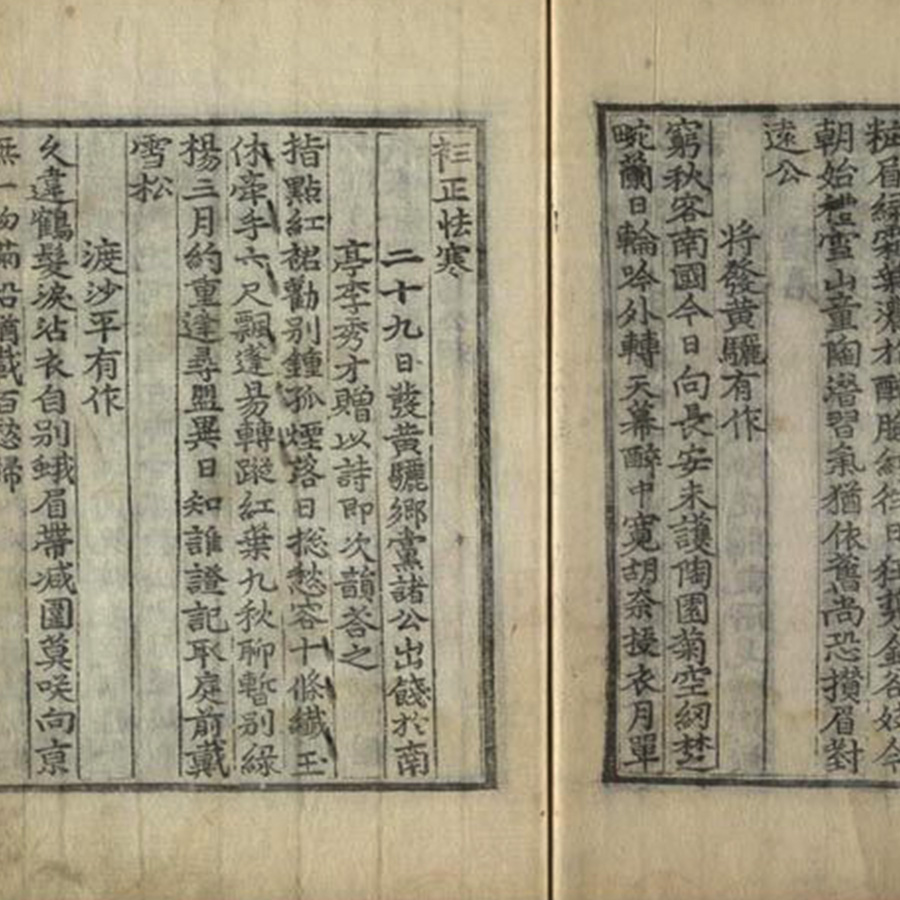 粧眉綠
朝始禮雪山童陶潛習氣猶依舊尚恐攢眉對
遠公
將發黃驪有作
窮秋客南國今日向長安未護陶園菊空紉楚
畹蘭日輪吟外轉天幕醉中寬胡奈授衣月單
衫正怯寒
二十九日發黃驪鄕黨諸公出餞於南
亭李秀才贈以詩卽次韻答之
指點紅裙勸別鍾孤煙落日摠愁容十條纖玉
休牽手六尺飄蓬易轉蹤紅葉九秋聊暫別綠
楊三月約重逢尋盟異日知誰證記取庭前戴
雪松
渡沙平有作
久違鶴髮淚沾衣自別蛾眉帶減圍莫咲向京
無一物滿船猶載百愁歸